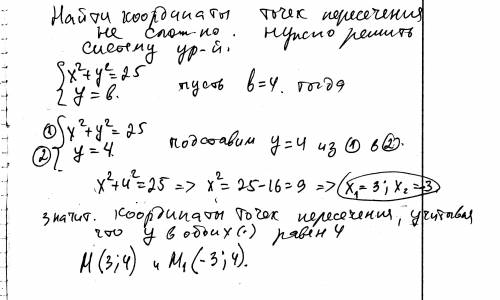 Найти координаты точек пересечения
не сложно. нужно решить
систему ур-й.
{ x²+y²=25
{ y=b. пусть b=4. тогда
① { x²+y²=25
② { y=4. подставим y=4 из ① в ②.
x²+4²=25 => x²=25-16=9 => x₁=3; x₂=-3
значит. координаты точек пересечения, учитывая
что y в обоих (·) равен 4
M(3;4) и M₁(-3;4).